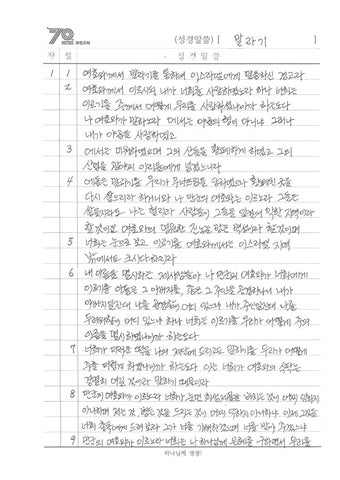 70 과천교회 (성경말씀) [ 말라기 ]
장 절 - 성 경 말 씀 -
1 1 여호와께서 말라기를 통하여 이스라엘에게 말씀하신 경고라
2 여호와께서 이르시되 내가 너희를 사랑하였노라 하나 너희는
이르기를 주께서 어떻게 우리를 사랑하셨나이까 하는도다
나 여호와가 말하노라 에서는 야곱의 형이 아니냐 그러나
내가 야곱을 사랑하였고
3 에서는 미워하였으며 그의 산들을 황폐하게 하였고 그의
산업을 광야의 이리들에게 넘겼느니라
4 에돔은 말하기를 우리가 무너뜨림을 당하였으나 황폐된 곳을
다시 쌓으리라 하거니와 나 만군의 여호와는 이르노라 그들은
쌓을지라도 나는 헐리라 사람들이 그들을 일컬어 악한 지역이라
할 것이요 여호와의 영원한 진노를 받은 백성이라 할 것이며
5 너희는 눈으로 보고 이르기를 여호와께서는 이스라엘 지역
밖에서도 크시다 하리라
6 내 이름을 멸시하는 제사장들아 나 만군의 여호와가 너희에게
이르기를 아들은 그 아버지를, 종은 그 주인을 공경하나니 내가
아버지일진대 나를 공경함이 어디 있느냐 내가 주인일진대 나를
두려워함이 어디 있느냐 하나 너희는 이르기를 우리가 어떻게 주의
이름을 멸시하였나이까 하는도다
7 너희가 더러운 떡을 나의 제단에 드리고도 말하기를 우리가 어떻게
주를 더럽게 하였나이까 하는도다 이는 너희가 여호와의 식탁은
경멸히 여길 것이라 말하기 때문이라
8 만군의 여호와가 이르노라 너희가 눈 먼 희생제물을 바치는 것이 어찌 악하지
아니하며 저는 것, 병든 것을 드리는 것이 어찌 악하지 아니하냐 이제 그것을
너희 총독에게 드려 보라 그가 너를 기뻐하겠으며 너를 받아 주겠느냐
9 만군의 여호와가 이르노라 너희는 나 하나님께 은혜를 구하면서 우리를
하나님께 영광!